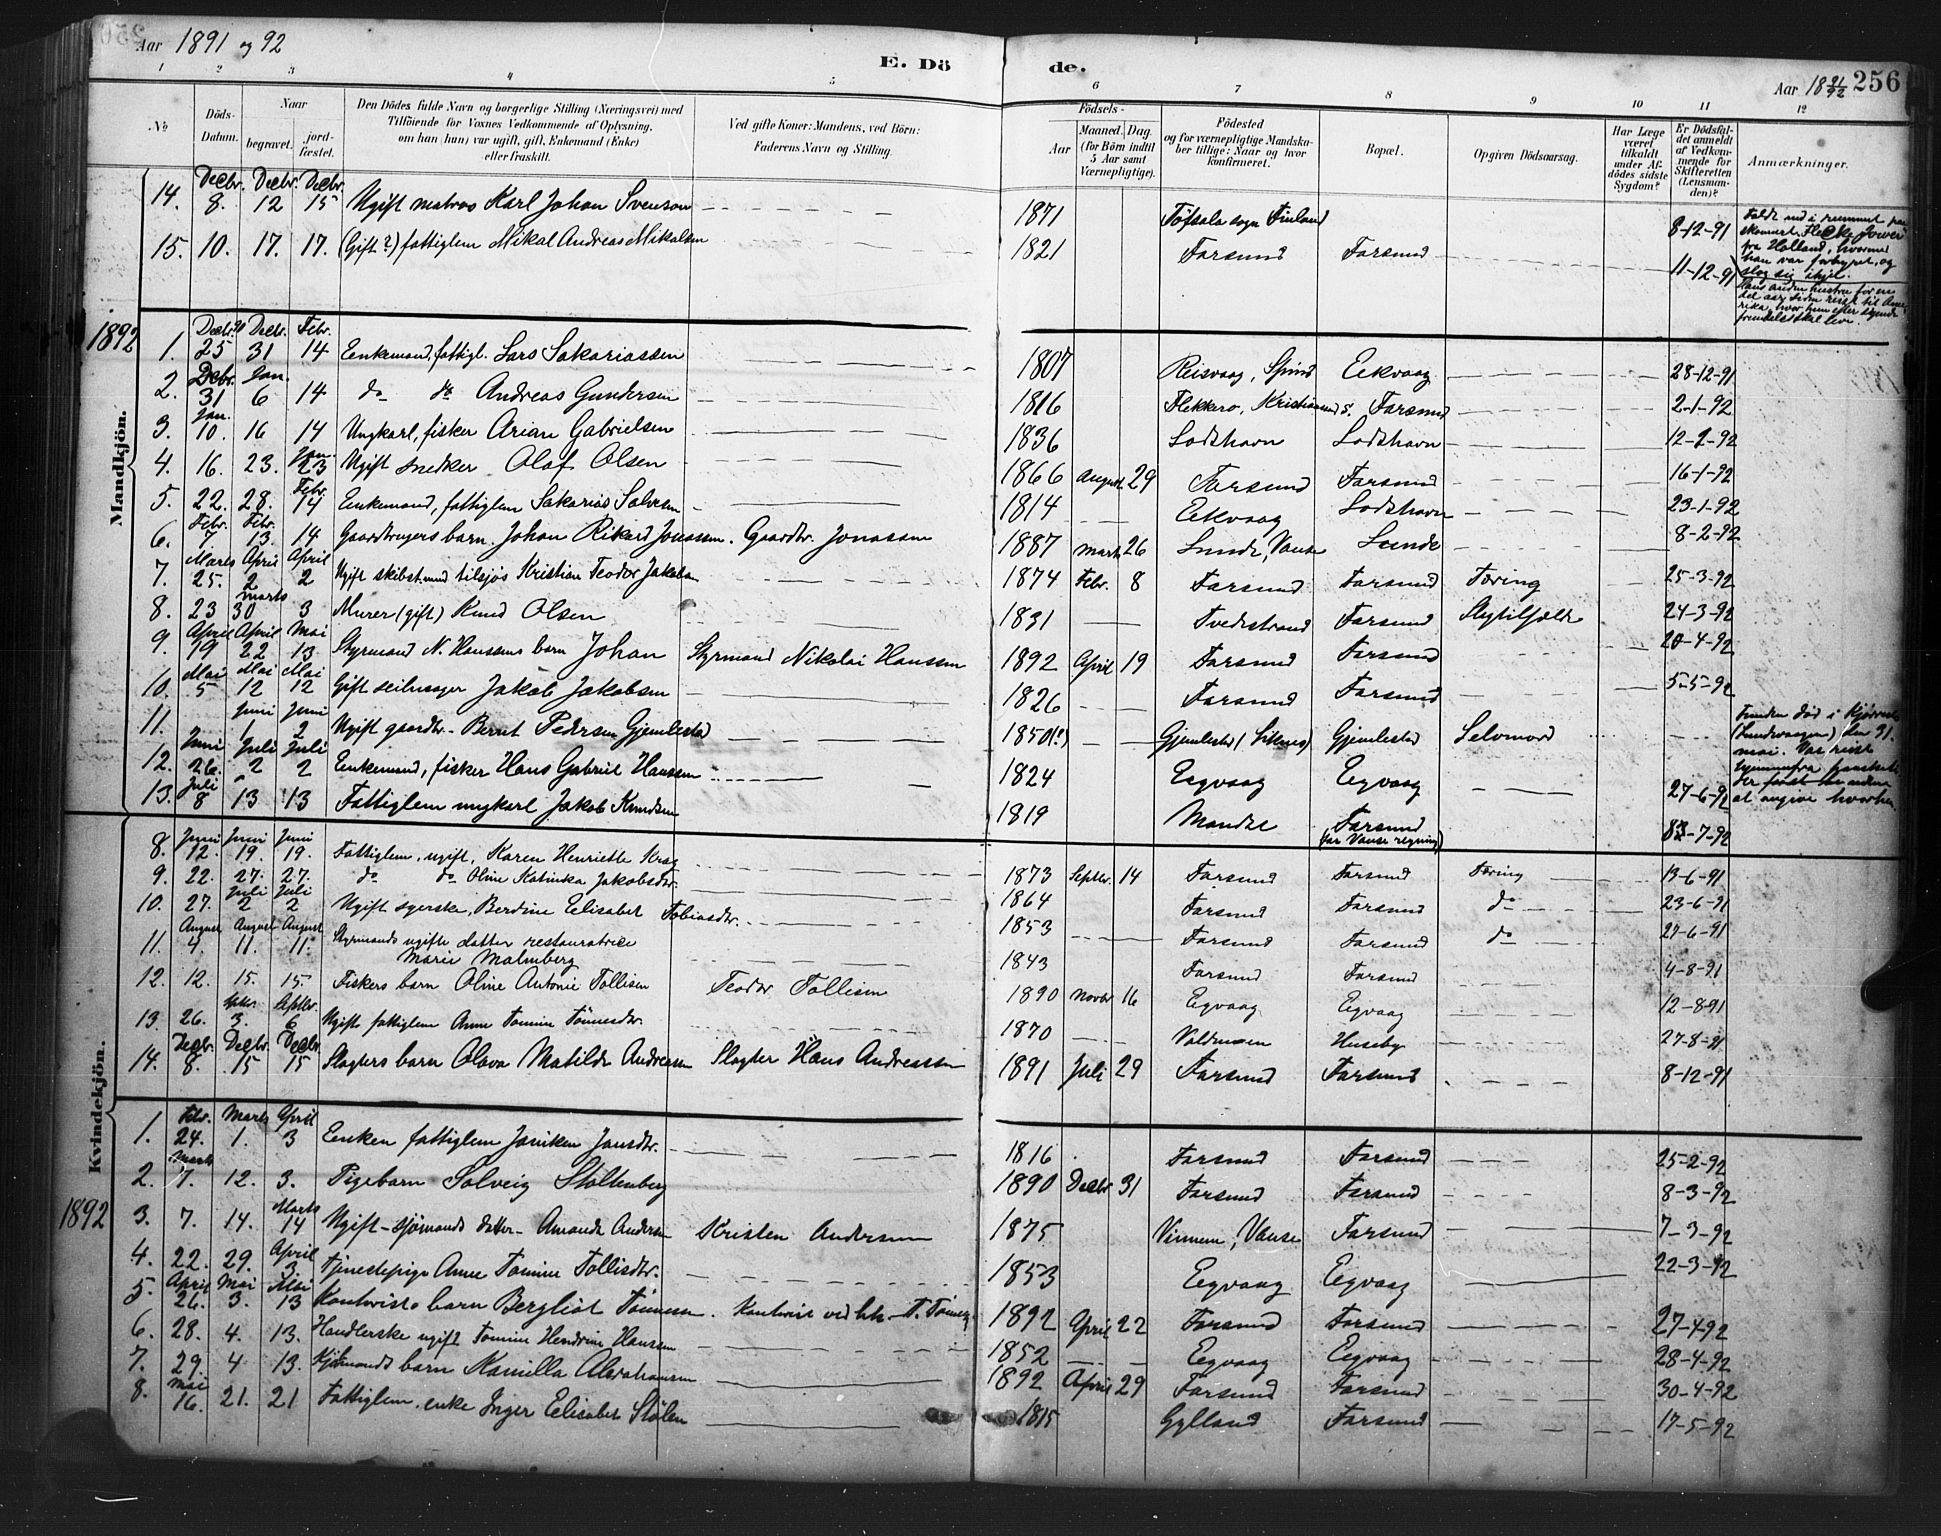 Aar 1891 og 92
E. Dö de.
Aar 18 91/92 256
1 2 3 4 5 6 7 8 9 10 11 12
No
Döds-Datum.
Naar
begravet.
jord-fæstet.
Den Dödes fulde Navn og borgerlige Stilling (Næringsvei) med
Tilföiende for Voxnes Vedkommende af Oplysning,
om han (hun) var ugift, gift, Enkemand (Enke)
eller fraskilt.
Ved gifte Koner: Mandens, ved Börn:
Faderens Navn og Stilling.
Födsels-
Aar
Maaned. Dag.
(for Börn indtil
5 Aar samt
Værnepligtige).
Födested
og for værnepligtige Mandska-
ber tillige: Naar og hvor
konfirmeret.
Bopæl.
Opgiven Dödsaarsag.
Har Læge
været
tilkaldt
under Af-
dödes sidste
Sygdom?
Er Dödsfal-
det anmeldt
af Vedkom-
mende for
Skifteretten
(Lensman-
den)?
Anmærkninger.
Mandkjön.
14. Decbr. 8. Decbr. 12 Decbr. 15 Ugift matros Karl Johan Svenson 1871 Töfsala sogn Finland 8-12-91 Faldt ned i rummet paa
skonnert Fleck fra Holland, hvormed
han var forhyret, og
slog sig ihjel.
15. 10. 17. 17. (Gift?) fattiglem Mikal Andreas Mikalsen 1821 Farsund Farsund 11-12-91 Hans anden hustru for en
del aar siden reist til Ame-
rika, hvor hun efter sigende
fremdeles skal leve.
1892
1. Decbr. 25 Decbr. 31 Febr. 14 Enkemand, fattigl. Lars Sakariassen 1807 Reisvaag, Spind Eekvaag 28-12-91
2. Decbr. 31 Jan. 6 14 do do Andreas Gundersen 1816 Flekkerö, Kristiansand s. Farsund 2-1-92
3. Jan. 10. 16 14 Ungkarl, fisker Arian Gabrielsen 1836 Lodshavn Lodshavn 12-2-92
4. 16. 23. Jan. 23 Ugift snedker Olaf Olsen 1866 August 29 Farsund Farsund 16-1-92
5. 22. 28. Febr. 14 Enkemand, fattiglem Sakarias Salvesen 1814 Eekvaag Lodshavn 23-1-92
6. Febr. 7 Febr. 13. 14 Gaardbrugers barn. Johan Rikard Jonassen. Gaardbr. Jonassen 1887 Marts 26 Lunde, Vanse Lunde 8-2-92
7. Marts 25. April 2 April 2 Ugift skibstmnd tilsjös Kristian Teodor Jakobsen 1874 Febr. 8 Farsund Farsund Tæring 25-3-92
8. 23 marts 30 3 Murer (gift) Knud Olsen 1831 Tvedestrand Farsund Slagtilfælde 24-3-92
9. April 19 April 22 Mai 13 Styrmand N. Hanssens barn Johan Styrmand Nikolai Hanssen 1892 April 19 Farsund Farsund 20-4-92
10. Mai 5 Mai 12 Mai 12 Gift seilmager Jakob Jakobsen 1826 Farsund Farsund 5-5-92
11. Juni 1 Juni 2 Ugift gaardbr. Bernt Pedersen Gjemlestad 1850(?) Gjemlestad Gjemlestad Selvmord Funden död i (Lundevaagen) den 31.
mai. Var reist
at angive hvorhen.
12. Juni 26. Juli 2 Juli 2 Enkemand, fisker Hans Gabriel Hanssen 1824 Eegvaag Eegvaag 27-6-92
13. Juli 8 13 13 Fattiglem ungkarl Jakob Knudsen 1819 Mandal Farsund (for Vanse regning) 8-7-92
Kvindekjön.
8. Juni 12. Juni 19. Juni 19. Fattiglem, ugift, Karen Henriette Krag 1873 Septbr. 14 Farsund Farsund Tæring 13-6-91
9. 22. 27. 27. do do Oline Katinka Jakobsdtr. 1864 Farsund Farsund do 23-6-91
10. 27. Juli 2 Juli 2 Ugift syerske, Berdine Elisabet Tobiasdtr. 1853 Farsund Farsund do 27-6-91
11. August 4. August 11. August 11. Styrmands ugifte datter restauratrice
Marie Malmberg 1843 Farsund Farsund 4-8-91
12. 12. 15. 15. Fiskers barn Oline Antonie Tollisen Teodor Tollisen 1890 Novbr 16 Eegvaag Eegvaag 12-8-91
13. 26. Septbr. 3. Septbr. 6 Ugift fattiglem Anne Tomine Tönnesdtr. 1870 Huseby 27-8-91
14. Decbr. 8. Decbr. 15 Decbr. 15 Slagters barn Olava Matilde Andreassen Slagter Hans Andreassen 1891 Juli 29 Farsund Farsund 8-12-91
1. Febr. 24. Marts 1. April 3 Enken fattiglem Janiken Jansdtr. 1816 Farsund Farsund 25-2-92
1892
2. Marts 7. 12. 3. Pigebarn Solveig Stoltenberg 1890 Decbr 31 Farsund Farsund 8-3-92
3. 7. 14. Marts 14 Ugift - sjömands datter - Amanda Andersen Kristen Andersen 1875 Vinnem, Vanse Farsund 7-3-92
4. 22. 29. April 3. tjenestepige Anne Tomine Tollisdtr. 1853 Eegvaag Eegvaag 22-3-92
5. April 26. Mai 3. Mai 13 Kontorists barn Bergliot Tönnessen. Kontorist 1892 April 22 Farsund Farsund 27-4-92
6. 28. 4. 13. Handlerske ugift Tomine Hendrine Hanssen 1852 Eegvaag Eegvaag 28-4-92
7. 29 4 13. Kjöbmands barn Kamilla Abrahamsen 1892 April 29 Farsund Farsund 30-4-92
8. Mai 16. 21. 21 Fattiglem, enke Inger Elisabet Stölen 1815 Gylland Farsund 17-5-92